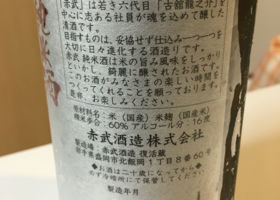 赤武』は若き六代目『古舘龍之介』を
中心に志ある社員が魂を込めて醸した
清酒です。
目指すものは、妥協せず仕込み一つ一つを
大切に日々進化する酒造りです。
赤武 純米酒は米の旨み風味をしっかり
といかし、綺麗に醸されたお酒です。
このお酒がみなさまの楽しい時間を
つくってくれることを願っております。
お楽しみください。
原材料名：米（国産）米麹（国産）
精米歩合：60％ アルコール分：16度
赤武酒造株式会社
製造場：赤武酒造 復活蔵
岩手県盛岡市北飯岡1丁目8番60号
◆お酒は二十歳になってから◆
必ず冷暗所にて保管してください
製造年月